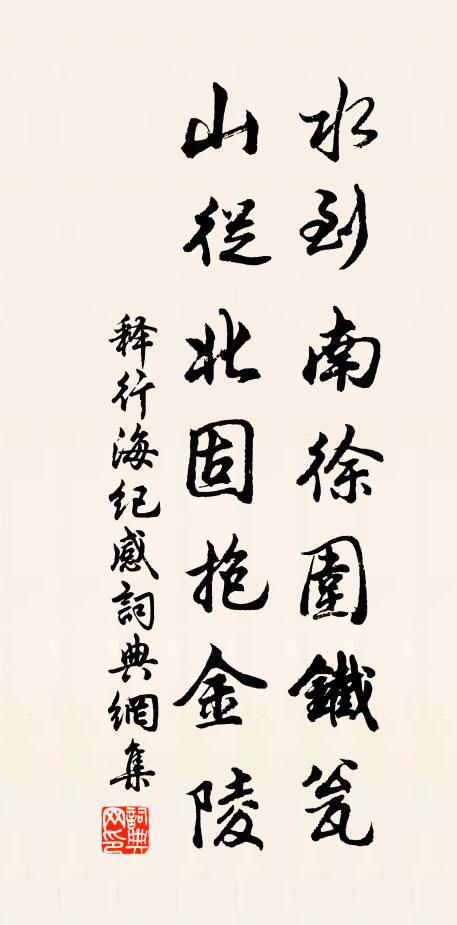 水到南徐圍鐵瓮
山從北固抱金陵
释行海纪感詞典網集
詞典网印